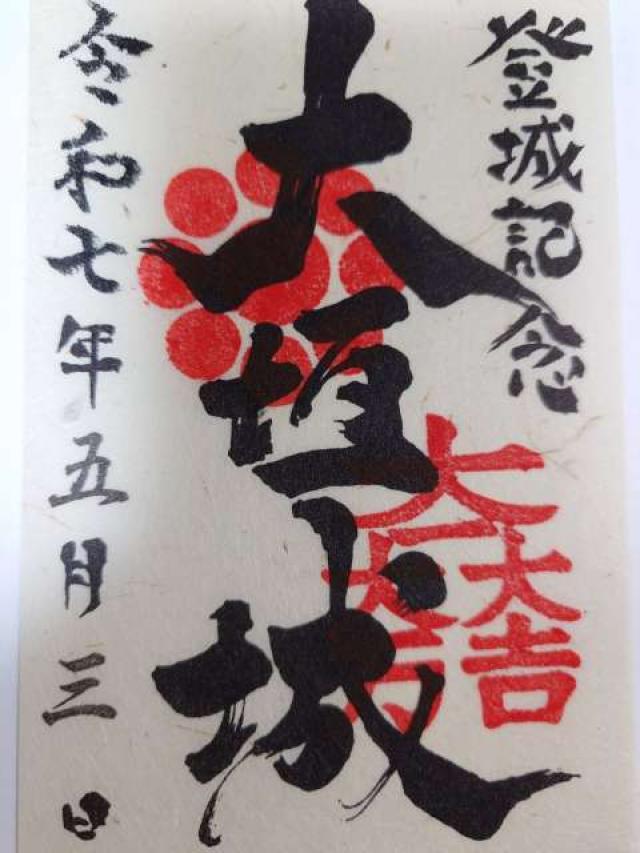 登城記念
大垣城
大一大万大吉
令和七年五月三日